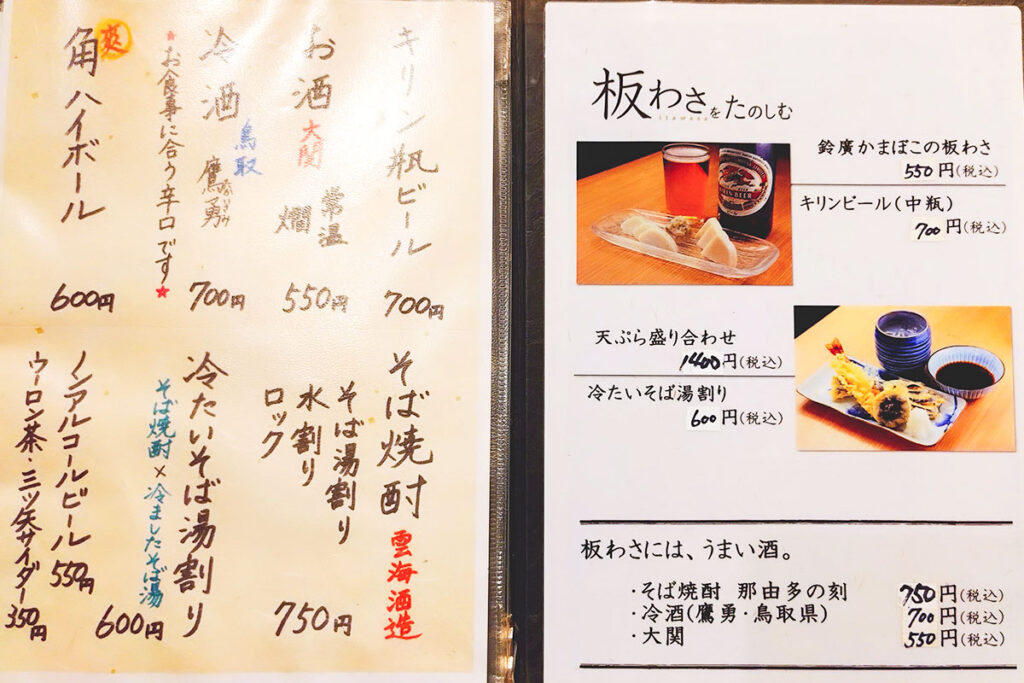 キリン瓶ビール
700円
お酒
大関
常温
燗
550円
冷酒
鳥取
鷹勇
700円
★お食事に合う辛口です★
爽
角ハイボール
600円
そば焼酎
雲海酒造
そば湯割り
水割り
ロック
750円
冷たいそば湯割り
そば焼酎×冷ましたそば湯
600円
ノンアルコールビール
550円
ウーロン茶・三ツ矢サイダー
350円
板わさをたのしむ
itawasa
鈴廣かまぼこの板わさ
550円(税込)
キリンビール(中瓶)
700円(税込)
天ぷら盛り合わせ
1400円(税込)
冷たいそば湯割り
600円(税込)
板わさには、うまい酒。
・そば焼酎 那由多の刻 750円(税込)
・冷酒(鷹勇・鳥取県) 700円(税込)
・大関 550円(税込)